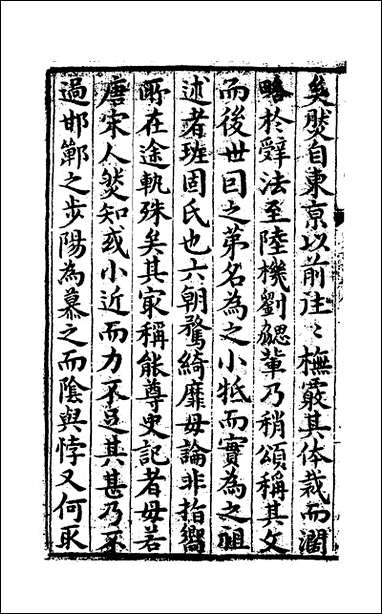 矣然自東京以前徃〻橅覈其体裁而濶
略於辭法至陸機劉勰軰乃稍頌稱其文
而後世囙之苐名為之小抵而實為之祖
述者班固氏也六朝騖綺靡毋論非指嚮
所在途軌殊矣其㝡稱能尊史記者毋若
唐宋人然知或小近而力不足其甚乃不
過邯鄲之步陽為慕之而陰與悖又何取